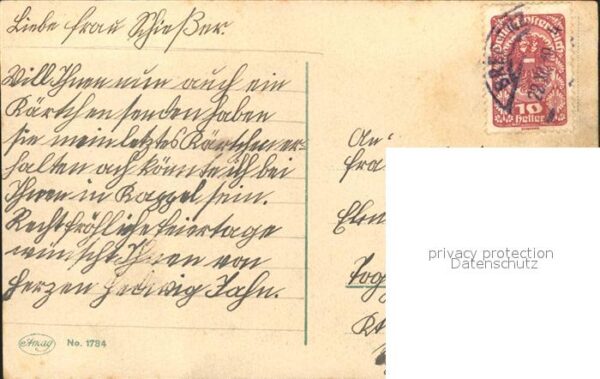 Liebe Frau Schießer.
Will Ihnen nun auch ein
Kärtchen senden haben
sie mein letztes Kärtchen er-
halten ach könnte ich bei
Ihnen in Kappel sein.
Recht fröhliche Feiertage
wünscht Ihnen von
Herzen Hedwig Jahn.
Amag No. 1784
Deutschösterreich
10
Heller
An
Fra
Togg
privacy protection
Datenschutz